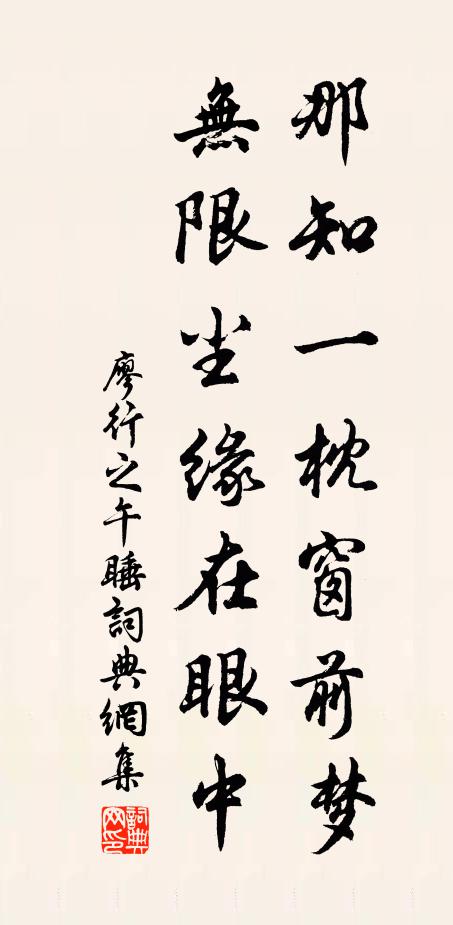 那知一枕窗前梦
無限尘缘在眼中
廖行之午睡詞典網集
詞典网印